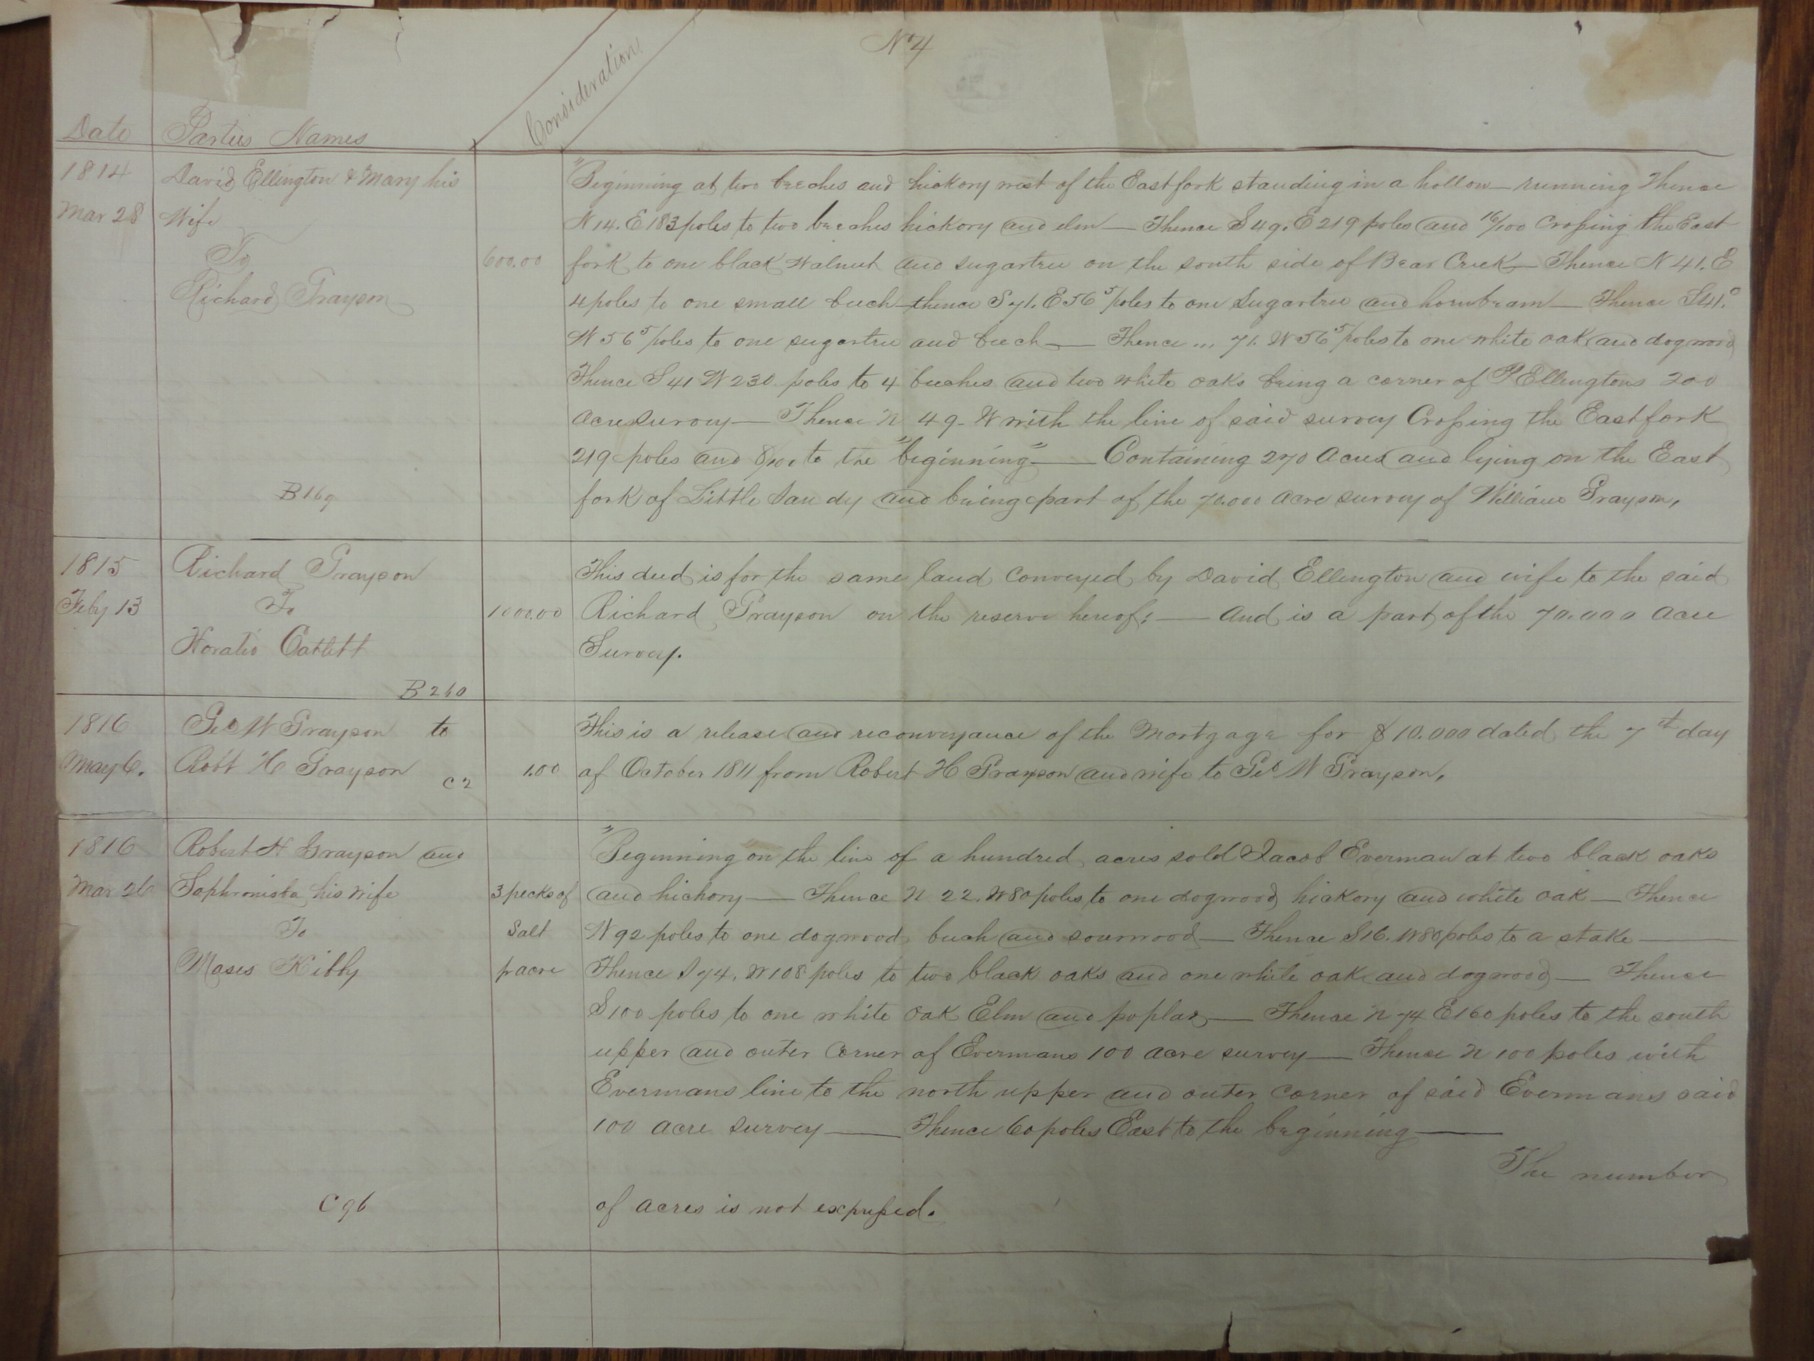 No 4
Date
Parties Names
Consideration
1814
Mar 28
David Ellington & Mary his
Wife
To
Richard Grayson
B169
600.00
"Beginning at two beeches and hickory west of the East fork standing in a hollow — running Thence
N 14. E 183 poles to two beeches hickory and elm — Thence S 49. E 219 poles and 16/100 Crossing the East
fork to one black Walnut and sugartree on the south side of Bear Creek — Thence N 41. E
4 poles to one small beech — thence S 71. E 56 5 poles to one Sugartree and hornbeam — Thence S 41.°
W 56 5 poles to one sugartree and beech — Thence ... 71. W 56 5 poles to one white oak and dogwood
Thence S 41 W 230 poles to 4 beeches and two white oaks being a corner of Ellingtons 200
acre survey — Thence N 49. W with the line of said survey Crossing the East fork
219 poles and to the "beginning" — Containing 270 Acres and lying on the East
fork of Little Sandy and being a part of the 70.000 Acre survey of William Grayson.
1815
Feby 13
Richard Grayson
To
Horatio Catlett
B260
1000.00
This deed is for the same land conveyed by David Ellington and wife to the said
Richard Grayson on the reserve hereof: — And is a part of the 70.000 Acre
Survey.
1816
May 6.
Geo W Grayson to
Robt H Grayson
C2
1.00
This is a release and reconveyance of the Mortgage for $10.000 dated the 7th day
of October 1811 from Robert H Grayson and wife to Geo W Grayson.
1816
Mar 26
Robert H Grayson and
Sophroniska his wife
To
Moses Kibby
C96
3 pecks of
Salt
pr acre
"Beginning on the line of a hundred acres sold Jacob Everman at two black oaks
and hickory — Thence N 22. W 80 poles to one dogwood hickory and white oak — Thence
W 92 poles to one dogwood beech and sourwood — Thence S 16. W 80 poles to a stake —
Thence S 74. W 108 poles to two black oaks and one white oak and dogwood — Thence
S 100 poles to one white oak Elm and poplar — Thence N 74 E 160 poles to the south
upper and outer Corner of Evermans 100 acre survey — Thence N 100 poles with
Evermans line to the north upper and outer corner of said Evermans said
100 acre survey — Thence 60 poles East to the beginning —
The number
of acres is not expressed.